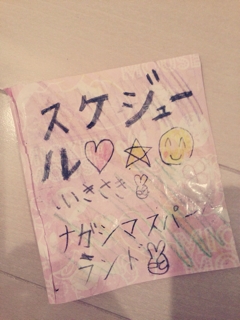 スケジュー
ル♡☆
いきさき
ナガシマスパー
ランド